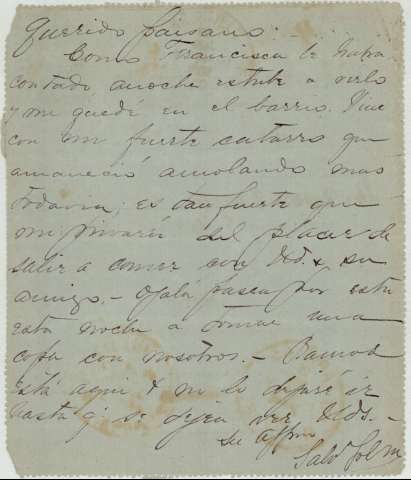 Querido paisano:
Como Francisca le habra
contado anoche estube a verlo
y me quedé en el barrio. Vine
con un fuerte catarro que
amaneció amolando mas
todavia; es tan fuerte que
me privaré del placer de
salir a comer con Ud. & su
amigo.- Ojalá pasen por esta
esta noche a tomar una
copa con nosotros.- Ramos
está aqui & no lo dejaré ir
hasta q se dejen ver Uds.-
Su affmo
Salvr